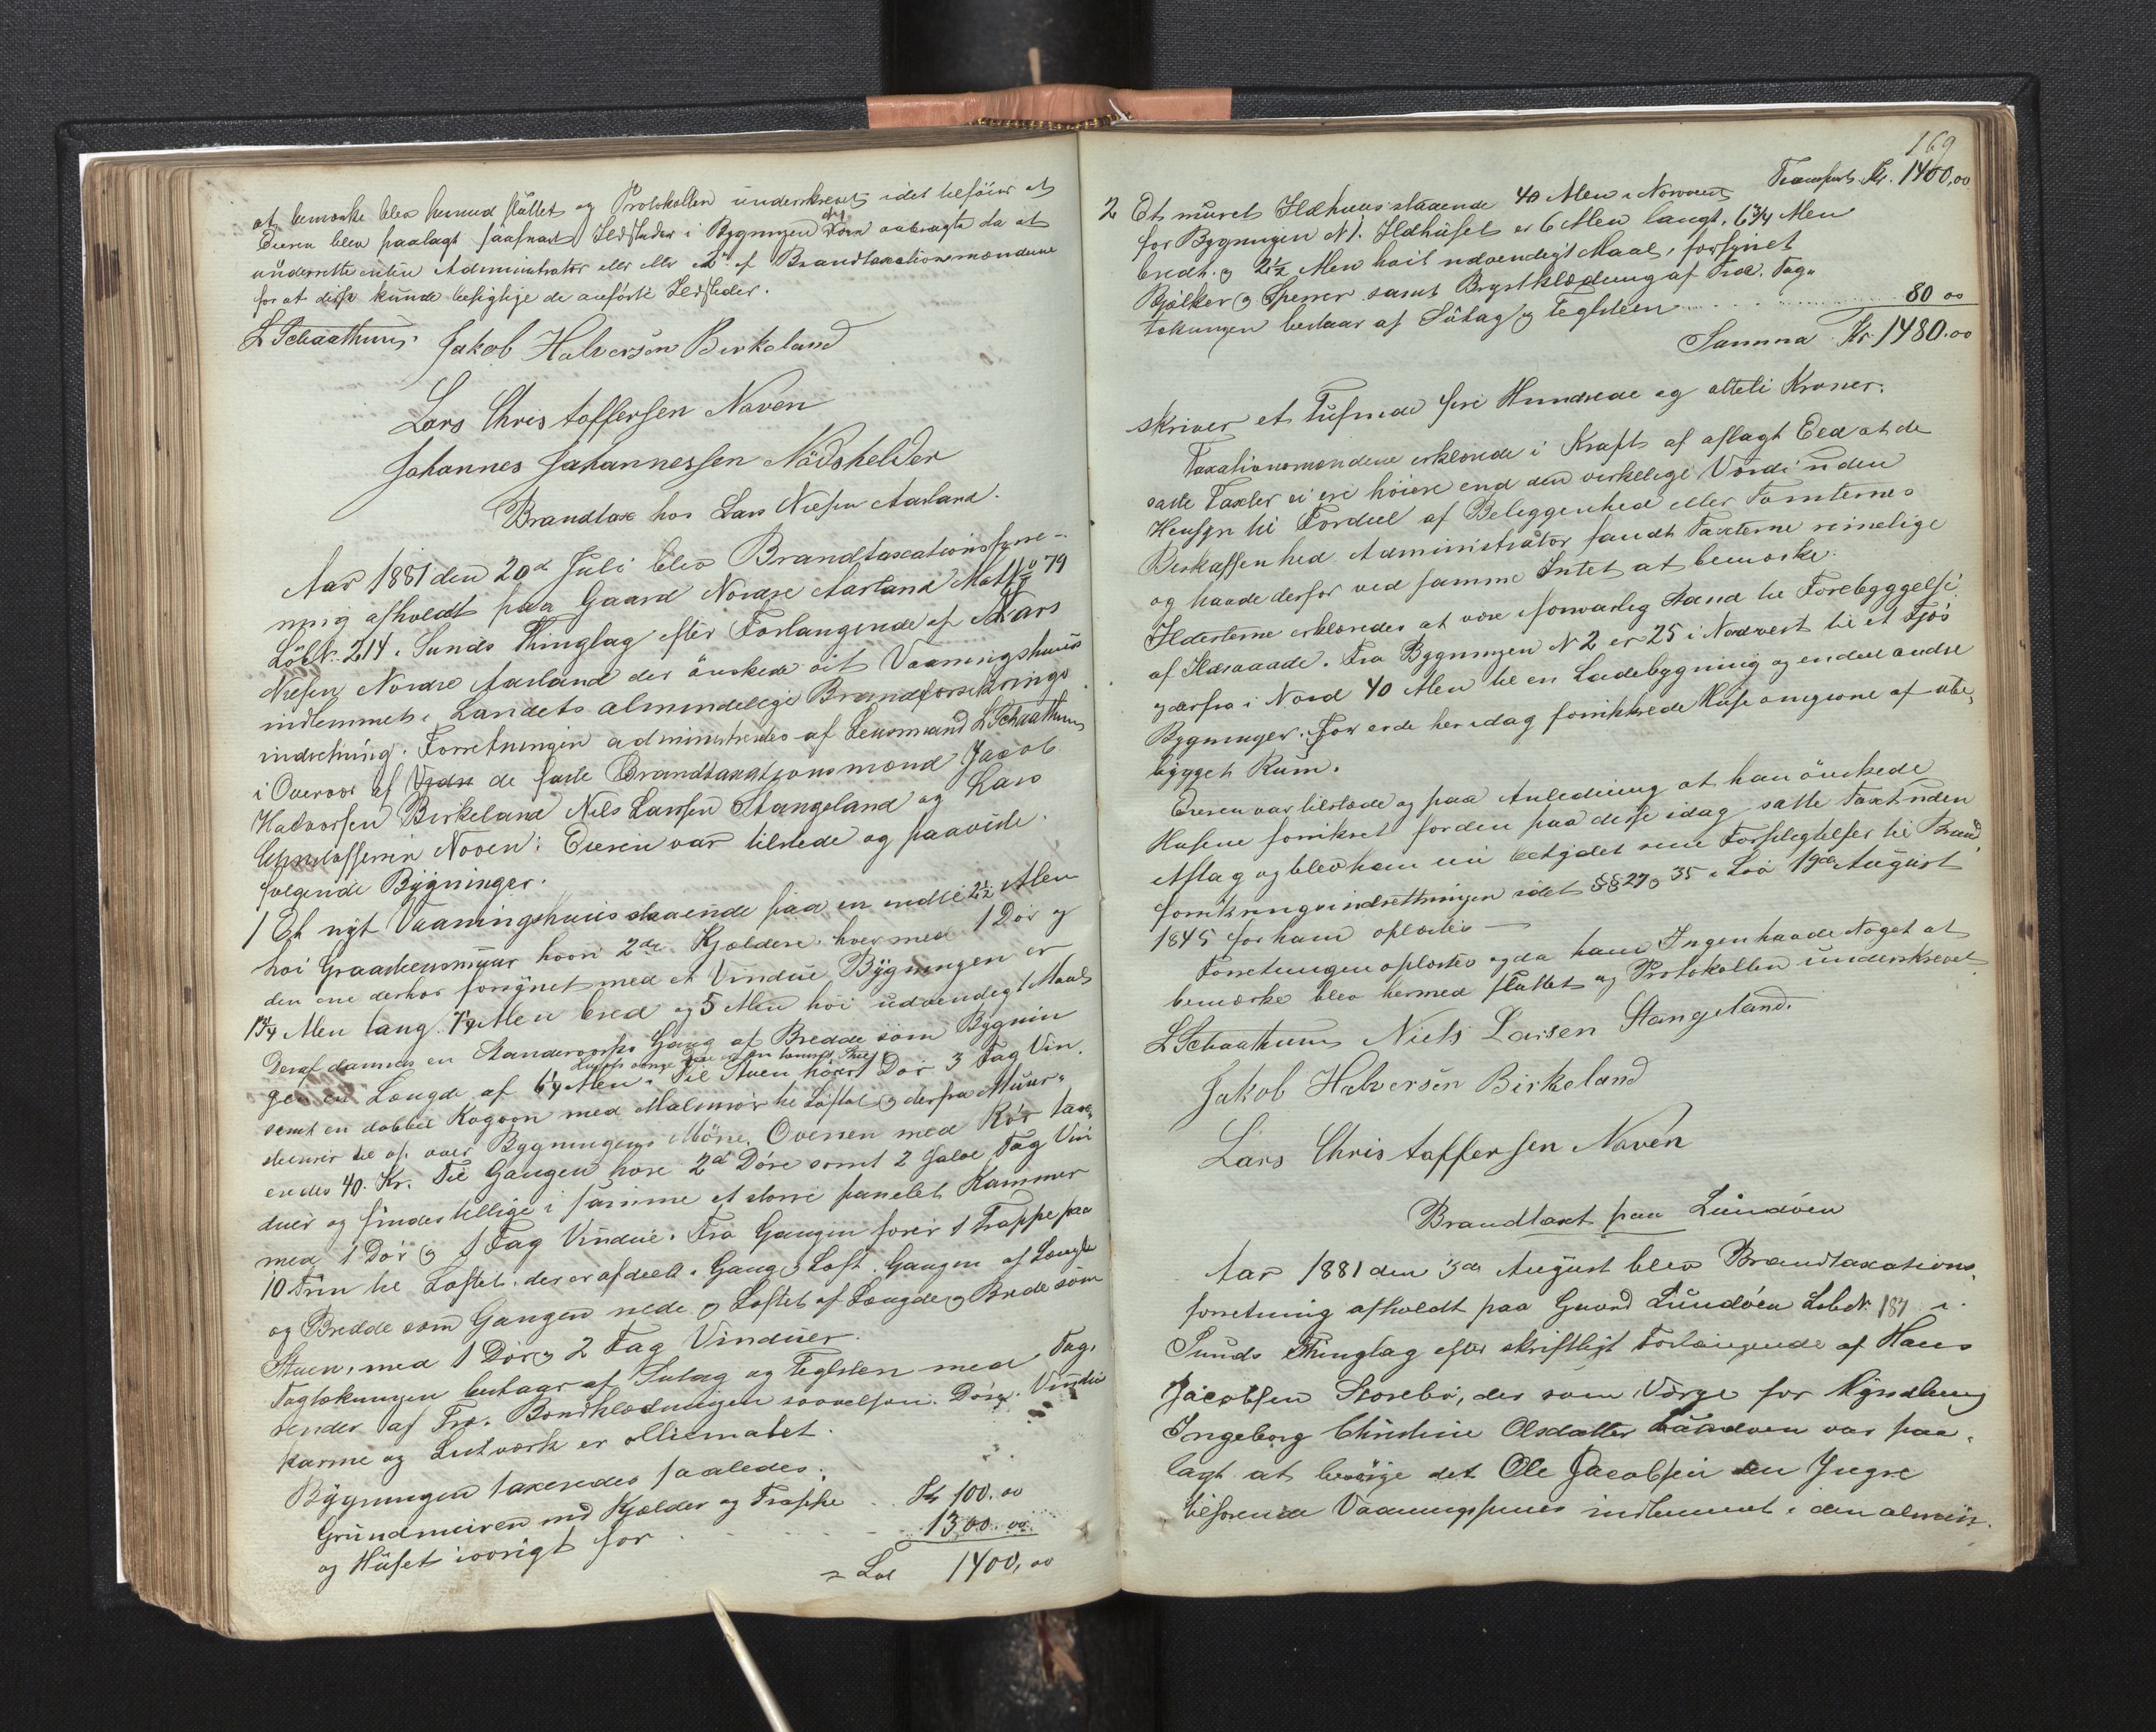 at bemærke blev hermed sluttet og Protokollen underskrevet idet tilføies at
Eieren blev paalagt saasnart Ildsteder i Bygningen anbragte da at
underrette enten Administrator eller eller 2de af Brandtaxationsmændene
for at disse kunde besigtige de anførte Ildsteder.
L Schaathun. Jakob Halversen Birkeland
Lars Christaffersen Naven
Johannes Johannessen Nødskelder
Brandtaxt hos Lars Nielsen Aarland.
Aar 1881 den 20de Juli blev Brandtaxationsforret-
ning afholdt paa Gaard Nordre Aarland Matr 79
LøbN. 214 i Sunds Thinglag efter Forlangende af Lars
Nielsen Nordre Aarland der ønskede sit Vaaningshuus
indlemmet i Landets almindelige Brandforsikrings
indretning. Forretningen administreredes af Lensmand L Schaathun
i Overvær af de faste Brandtaxationsmænd Jacob
Halvorsen Birkeland Nils Larssen Stangeland og Lars
Christoffersen Noven. Eieren var tilstede og paaviste
følgende Bygninger.
1 Et nyt Vaaningshuus staaende paa en indtil 2½ Alen
høi Graasteensmuur hvori 2de Kjældere hver med 1 Dør og
den ene derhos forsynet med et Vindue Bygningen er
13¾ Alen lang Alen bred og 5 Alen høi udvendigt Maal
Deraf dannes en Gang af Bredde som Bygnin
gen en Længde af 6¼ Alen. Til Stuen hører 1 Dør 3 Fag Vin
samt en dobbel Kogovn med Malmrør til Loftet og derfra Muur-
steensrør til op over Bygningens Mønne. Ovenen med Rør taxe-
redes 40. Kr. Til Gangen høre 2de Døre samt 2 halve Fag Vin
duer og findes tillige i samme et større panelet Kammer
med 1 Dør og 1 Fag Vindue. Fra Gangen fører 1 Trappe paa
10 Trin til Loftet. der er afdeelt i Gang og Loft. Gangen af Længde
og Bredde som Gangen nede og Loftet af Længde og Brede som
Stuen, med 1 Dør og 2 Fag Vinduer.
Tagtækningen bestaar af Sutag og Teglsten med Tag-
render af Træ. Bordklædningen saavelsom Døre. Vindu
karme og Listværk er olliemalet.
Bygningen taxeredes saaledes.
Grundmuren med Kjælder og Trappe . Kr 100.00
og Huset iøvrigt for . . . . 1300.00
= Lat 1400,00
169
Transport Kr. 1400,00
2 Et muret Ildhuus staaende 40 Alen i Nordvest
for Bygningen N 1. Ildhuset er 6 Alen langt, 6¾ Alen
bredt. og 2½ Alen høit udvendigt Maal, forsynet
Bjælker og Sperrer samt Brystklædning af Træ. Tag-
tækningen bestaar af Sutag og Teglsteen . . . . 80 00
Summa Kr. 1480.00
skriver et Tusinde fire Hundrede og otteti Kroner.
Taxationsmændene erklærede i Kraft af aflagt Eed at de
satte Taxter ei ere høiere end den virkelige Værdi uden
Hensyn til Fordeel af Beleggenhed eller Tomternes
Beskaffenhed. Administrator fandt Taxterne rimelige
og havde derfor ved samme Intet at bemærke.
Ildsterne erklæredes at være i forsvarlig Stand til Forebyggelse
af Ildsvaade. Fra Bygningen N 2 er 25 i Nordvest til et Fjøs
og derfra i Nord 40 Alen til en Ladebygning og endeel andre
Bygninger. For erde her idag forsikrede Huse omgivne af ube-
bygget Rum.
Eieren var tilstede og paa Anledning at han ønskede
Husene forsikret for den paa disse idag satte Taxt uden
Aftag og blev ham nu betydet sine Forpligtelser til Brand
forsikringsindretningen idet §§ 27 og 35 i Lov 19de August
1845 for ham oplæstes —
Forretningen oplæstes og da Ingen havde Noget at
bemærke blev hermed sluttet og Protokollen underskrevet.
L Schaathun Niels Larsen Stangeland.
Jakob Halversen Birkeland
Lars Christaffersen Navén
Brandtaxt paa Lundøen
Aar 1881 den 3de August blev Brandtaxations-
forretning afholdt paa Gaard Lundøen LøbN. 187 i
Sunds Thinglag efter skriftligt Forlangende af Hans
Jacobsen Storebø, der som Værge for Myndling
Ingeborg Christine Olsdatter Lundøen var paa-
lagt at besørge det Ole Jacobsen den Yngre
tilhørende Vaaningshuus indlemmet i den almin-